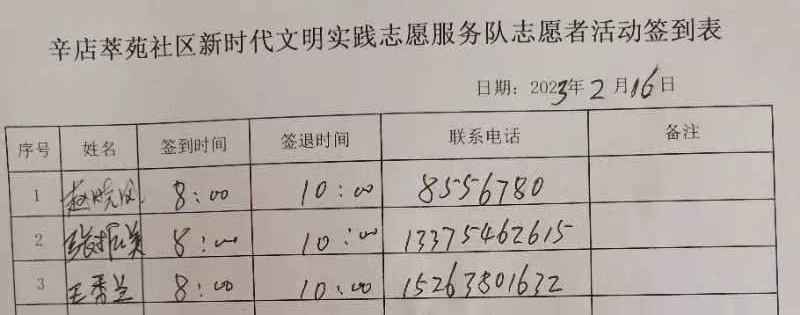 辛店萃苑社区新时代文明实践志愿服务队志愿者活动签到表
日期：2023年2月16日
序号 姓名 签到时间 签退时间 联系电话 备注
1 赵晓 8:00 10:00 8556780
2 8:00 10:00 13375462615
3 王秀兰 8:00 10:00 15263801632